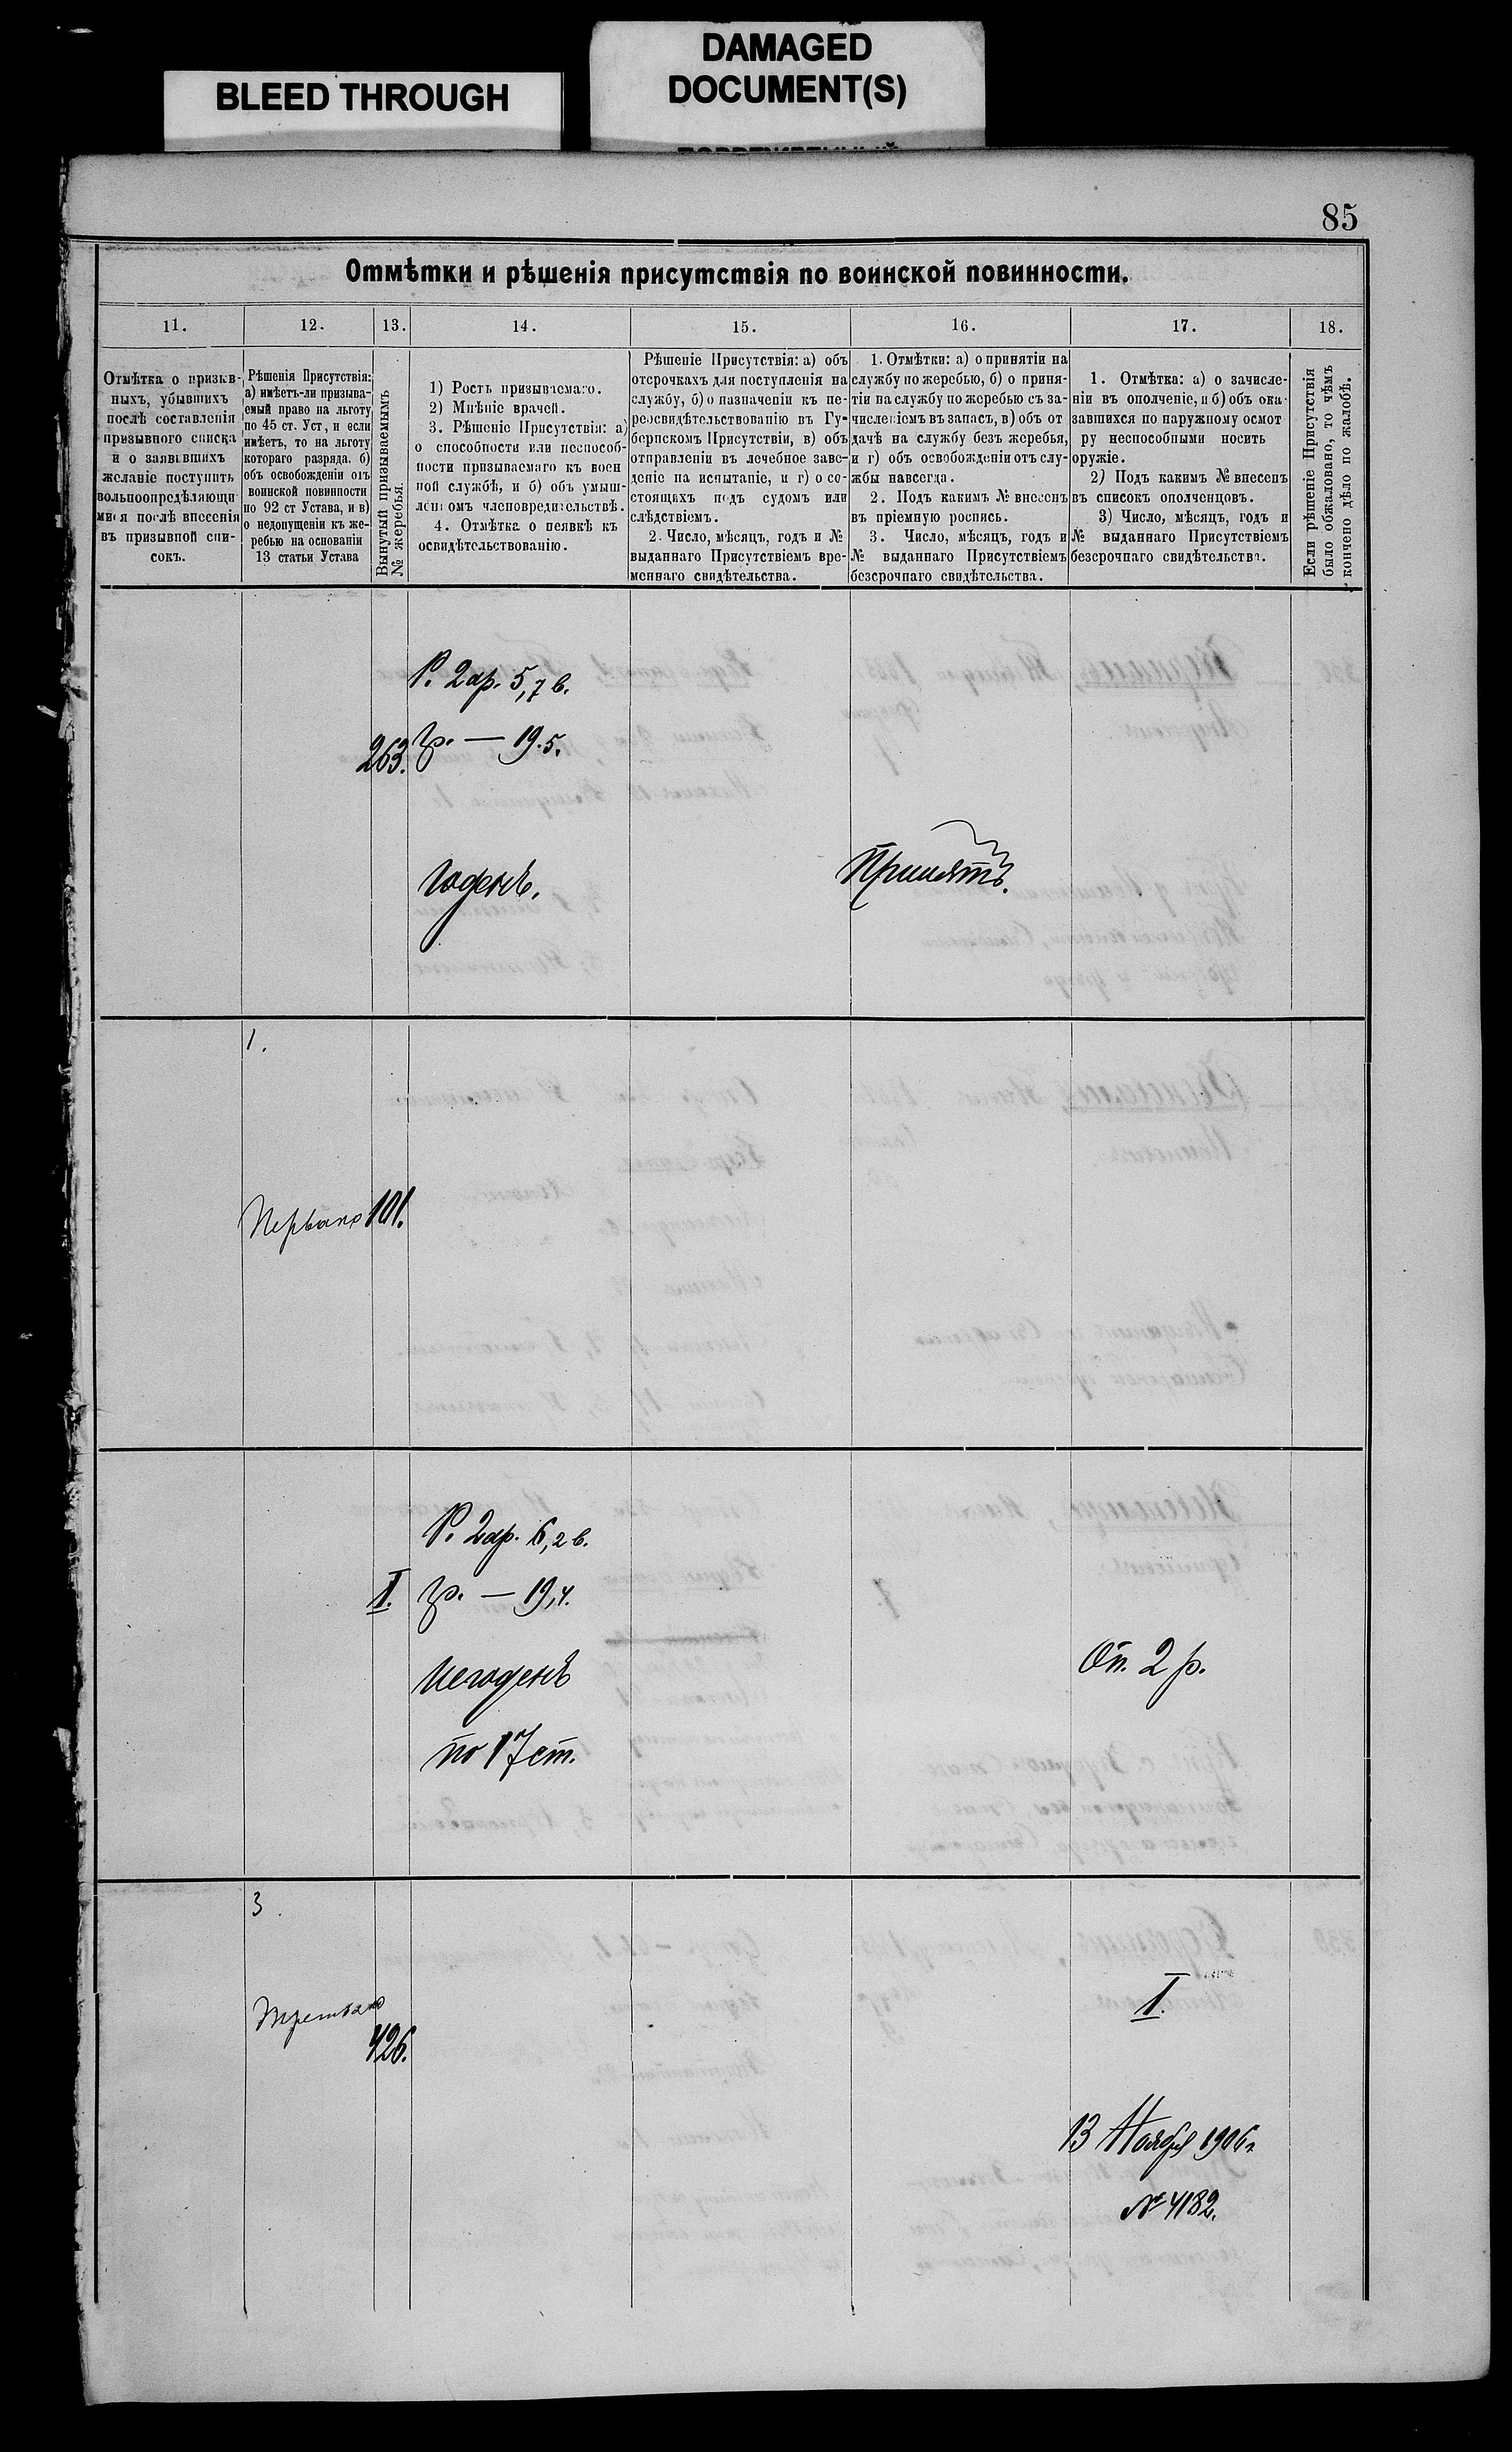 BLEED THROUGH
DAMAGED
DOCUMENT(S)
85
Отмѣтки и рѣшенія присутствія по воинской повинности.
11. 12. 13. 14. 15. 16. 17. 18.
Отмѣтка о призыв-
ныхъ, убывшихъ
послѣ составленія
призывного списка
и о заявившихъ
желаніе поступить
вольноопредѣляющи
мися послѣ внесенія
въ призывной спи-
сокъ.
Рѣшенія Присутствія:
а) имѣетъ-ли призыва-
емый право на льготу
по 45 ст. Уст, и если
имѣетъ, то на льготу
котораго разряда. б)
объ освобожденіи отъ
воинской повинности
по 92 ст Устава, и в)
о недопущеніи къ же-
ребью на основаніи
13 статьи Устава
Вынутый призываемымъ
№ жеребья.
1) Ростъ призываемаго.
2) Мнѣніе врачей.
3. Рѣшеніе Присутствія: а)
о способности или неспособ-
ности призываемаго къ воен
ной службѣ, и б) объ умыш-
ленномъ членовредительствѣ.
4. Отмѣтка о неявкѣ къ
освидѣтельствованію.
Рѣшеніе Присутствія: а) объ
отсрочкахъ для поступленія на
службу, б) о назначеніи къ пе-
реосвидѣтельствованію въ Гу-
бернскомъ Присутствіи, в) объ
отправленіи въ лечебное заве-
деніе на испытаніе, и г) о со-
стоящихъ подъ судомъ или
слѣдствіемъ.
2. Число, мѣсяцъ, годъ и №
выданнаго Присутствіемъ вре-
меннаго свидѣтельства.
1. Отмѣтки: а) о принятіи на
службу по жеребью, б) о приня-
тіи на службу по жеребью съ за-
численіемъ въ запасъ, в) объ от
дачѣ на службу безъ жеребья,
и г) объ освобожденіи отъ слу-
жбы навсегда.
2. Подъ какимъ № внесенъ
въ пріемную роспись.
3. Число, мѣсяцъ, годъ и
№ выданнаго Присутствіемъ
безсрочнаго свидѣтельства.
1. Отмѣтка: а) о зачисле-
ніи въ ополченіе, и б) объ ока-
завшихся по наружному осмот
ру неспособными носить
оружіе.
2) Подъ какимъ № внесенъ
въ списокъ ополченцовъ.
3) Число, мѣсяцъ, годъ и
№ выданнаго Присутствіемъ
безсрочнаго свидѣтельства.
Если рѣшеніе Присутствія
было обжаловано, то чѣмъ
кончено дѣло по жалобѣ.
Р. 2 ар. 5,7 в.
263. гр. — 19.5.
Годенъ.
Принятъ.
1.
Перваго 101.
Р. 2 ар. 6,2 в.
I. гр. — 19,4.
Негоденъ
по 17 ст.
Оп. 2 р.
3.
Третьяго
426.
I.
13 Ноября 1906 г.
№ 4182.